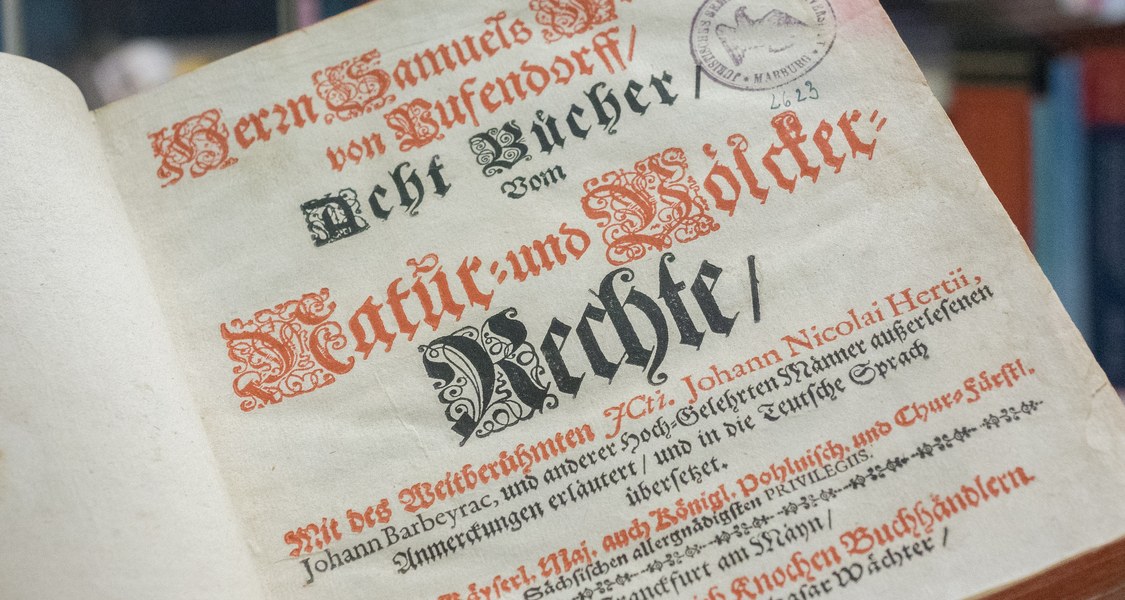 Herrn Samuels
von Pufendorff/
Acht Bücher/
Vom
Natür- und Völcker-
Rechte/
Mit des Weitberühmten JCti. Johann Nicolai Hertii,
Johann Barbeyrac, und anderer Hoch-Gelehrten Männer außerlesenen
Anmerckungen erläutert/ und in die Teutsche Sprach
übersetzet.
Käyserl. Maj. auch Königl. Pohlnisch. und Chur-Fürstl.
Sächsischen allergnädigsten PRIVILEGIIS.
Franckfurt am Mayn/
Knochen Buchhändlern.
Wächter/
MARBURG
2623